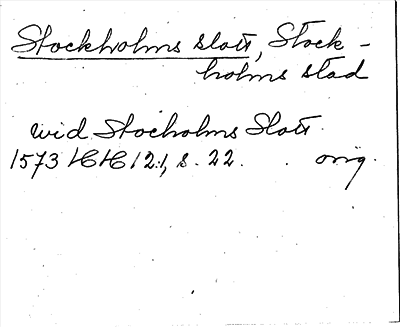 Stockholms slott, Stock-
holms stad
wid Stocholms Slott.
1573 HH 12:1, s. 22. orig.